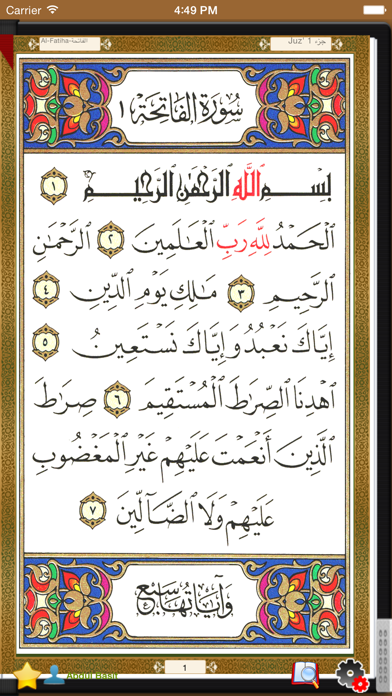 Carrier 4:49 PM
Al-Fatiha-الفاتحة Juz' 1 جزء
سُورَةُ الفَاتِحَةِ ١
بِسْمِ اللَّهِ الرَّحْمَٰنِ الرَّحِيمِ ١
الْحَمْدُ لِلَّهِ رَبِّ الْعَالَمِينَ ٢ الرَّحْمَٰنِ
الرَّحِيمِ ٣ مَالِكِ يَوْمِ الدِّينِ ٤
إِيَّاكَ نَعْبُدُ وَإِيَّاكَ نَسْتَعِينُ ٥
اهْدِنَا الصِّرَاطَ الْمُسْتَقِيمَ ٦ صِرَاطَ
الَّذِينَ أَنْعَمْتَ عَلَيْهِمْ غَيْرِ الْمَغْضُوبِ
عَلَيْهِمْ وَلَا الضَّآلِّينَ ٧
وَآيَاتُهَا سَبْعٌ
1
Abdul Basit